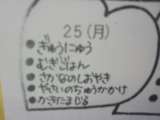 25(月)
●ぎゅうにゅう
●むぎごはん
●さかなのしおやき
●やさいのちゅうかかけ
●かきたまじる